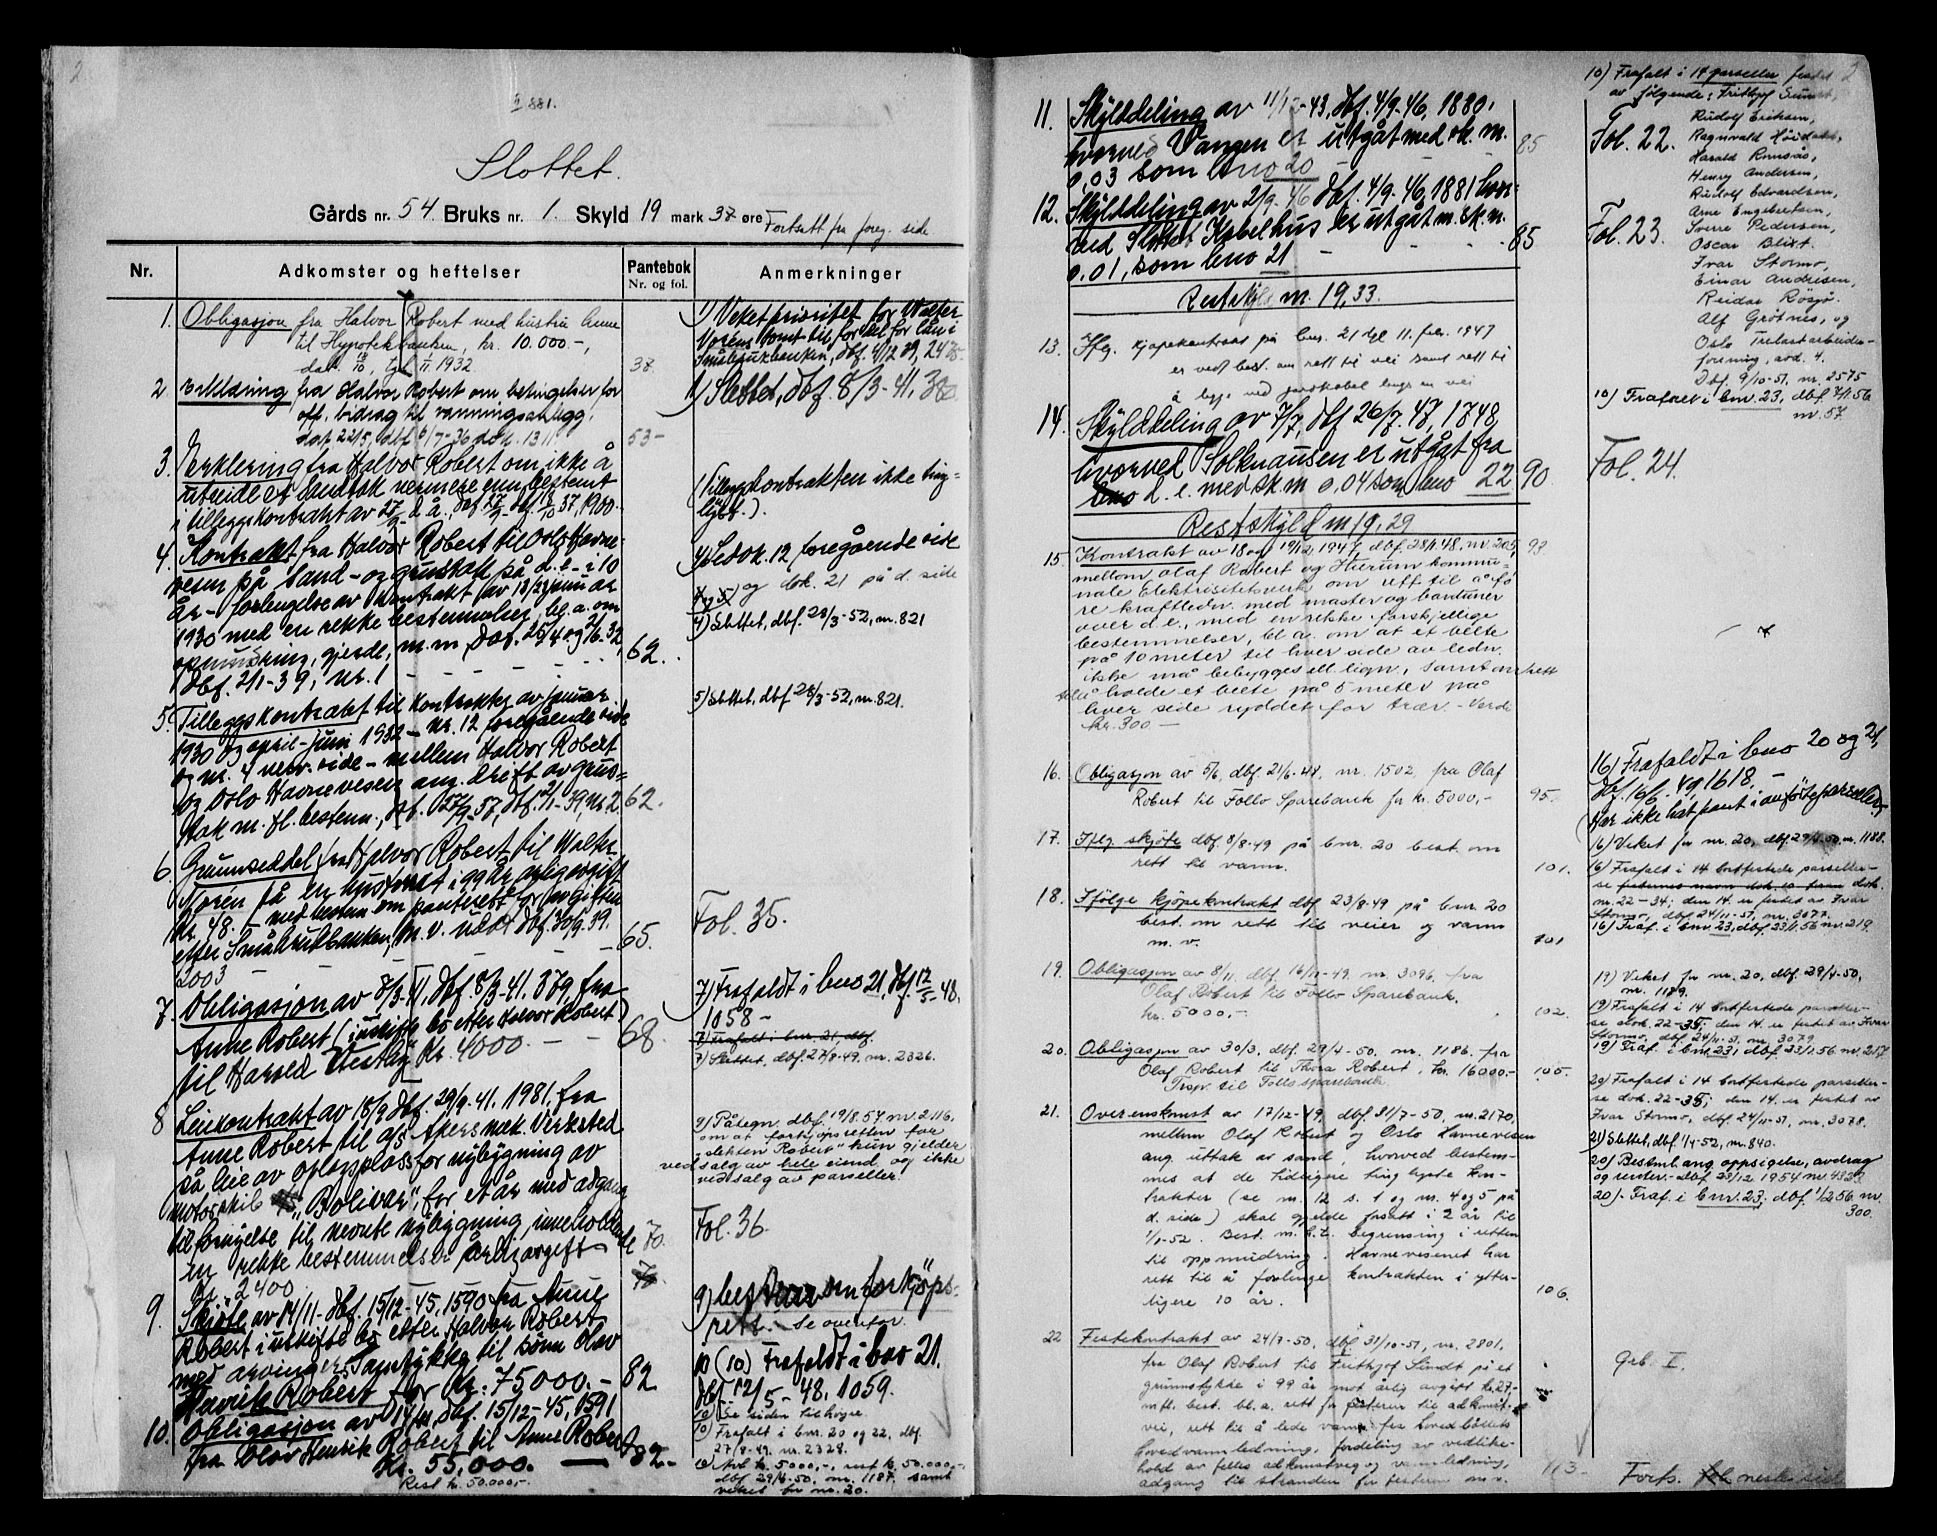 2
II 881.
Slottet.
Gårds nr. 54 Bruks nr. 1. Skyld 19 mark 37 øre Fortsatt fra foreg. side
Nr. Adkomster og heftelser Pantebok Nr. og fol. Anmerkninger
1. Obligasjon fra Halvor Robert med hustru Anne
til Hypotekbanken, kr. 10.000.-,
1932 37
2. Erklæring fra Halvor Robert om betingelser for
off. bidrag til vanningsanlegg.
dat. 22/5, dbf. 6/7-36 dok. 1311 53-
3. Erklering fra Halvor Robert om ikke å
utbeide et sandtak nermere enn bestemt
i tilleggskontrakt av 27/9 d. å., 37, 1900.
4. Kontrakt fra Halvor Robert til Oslo Havne-
vesen på sand- og grustak på d. e. i 10
år - forlengelse av kontrakt av juni
1930 med en rekke bestemmelser bl. a. om
opmudring, gjerde, m. m. dat. 25/4 og 2/6. 32,
dbf. 2/1-39, nr. 1 62.
5. Tilleggskontrakt til kontrakter av januar
1930 og april-juni 1932 - nr. 12 foregående side
og nr. 4 nerv. side - mellem Halvor Robert
og Oslo Havnevesen ang. drift av grus-
tak m. fl. bestemm., dbf. 2/1-39, nr. 2 62.
6. Grunnseddel fra Halvor Robert til Walter
Norén på en hustomt i 99 år årlig avgift
kr. 48.- med bestem. om panterett for avgiften
efter Småbrukbanken, m. v. dbf. 30/9. 39.
2003 65.
7. Obligasjon av 8/3-41, dbf. 8/3-41. 379, fra
Anne Robert (i uskifte bo efter Halvor Robert)
til Harald Vestby kr. 4000. 68.
8 Leiekontrakt av 18/9 dbf. 29/9-41. 1981, fra
Anne Robert til A/S Akers mek. Verksted
på leie av oplagsplass for nybygning av
motorskib "Bolivar", for et år med adgang
til fornyelse til nevnte nybygning, inneholdende
en rekke bestemmelser årlig avgift
kr. 2400 70.
9. Skjøte av 14/11- dbf. 15/12-45, 1590 fra Anne
Robert i uskifte bo efter Halvor Robert
med arvingers samtykke til sønn Olav
Henrik Robert for kr. 75000.- 82
10. Obligasjon av 14/11, dbf. 15/12-45, 1591
fra Olav Henrik Robert til Anne Robert
kr. 55,000. 82-
Rest kr. 50.000,-.
1) Veket prioritet for Walter
Noréns tomt til fordel for lån i
Småbrukbanken, dbf. 4/12 39,
1) Slettet, dbf. 8/3-41, 380.
(Tilleggskontrakten ikke ting-
lyst.).
4) Se dok. 12 foregående side
og dok. 21 på d. side
4) Slettet, dbf. 28/3-52, nr. 821
5) Slettet, dbf. 28/3-52, nr. 821.
Fol. 35.
7) Frafaldt i bno 21, dbf. 12/5-48.
1058 -
7) Frafalt i bnr. 21, dbf.
7) Slettet, dbf. 27/8-49. nr. 2326.
9) Påtegn. dbf. 19/8.54 nr. 2116,
om at forkjøpsretten for
"slekten Robert" kun gjelder
ved salg av hele eiend. og ikke
ved salg av parseller.
Fol. 36
9) best. om forkjøps-
rett. Se ovenfor.
10 (10) Frafaldt i bno 21.
dbf. 12/5-48. 1059.
10) Se siden til høgre.
10) Frafalt i bnr. 20 og 22, dbf.
27/8-49. nr. 2328.
10) Avb. kr. 5000,-, rest kr. 50.000,-,
dbf. 29/4-50, nr. 1187, samt
veket for nr. 20.
11. Skylddeling av 43, dbf. 4/9-46, 1880,
hvorved Vangen er utgåt med sk. m.
0,03 som bno 20 85
12. Skylddeling av 2/9-46 dbf. 4/9-46, 1881 hvor-
ved Slottet Kabelhus er utgåt m. sk m.
0,01, som bno 21 85
Restskyld m. 19,33.
13. Ifg. kjøpekontrakt på bnr. 21 dgl. 11. febr. 1947
er ved best. om rett til vei samt rett til
å legge ned jordkabel langs en vei
14. Skylddeling av 7/7, dbf 26/7. 47, 1748,
hvorved Solknausen er utgåt fra
d. e. med sk m 0,04 som bno 22 90
Restskyld m 19,29
15. Kontrakt av 18 og 19/12, 1947, dbf. 28/1. 48, nr. 205, 93
mellom Olaf Robert og Hurum kommu-
nale Elektrisitetsverk om rett til å fø-
re kraftledn. med master og barduner
over d. e., med en rekke forskjellige
bestemmelser, bl. a. om at et belte
på 10 meter til hver side av ledn.
ikke må bebygges ell. lign., samt om rett
til å holde et belte på 5 meter på
hver side ryddet for trær. - Verdi
kr. 300 -
16. Obligasjon av 5/6, dbf. 21/6-48, nr. 1502, fra Olaf
Robert til Follo Sparebank for kr. 5000,- 95.
17. Iflg. skjøte dbf. 8/8-49 på bnr. 20 best. om
rett til vann. 101.
18. Ifølge kjøpekontrakt dbf. 23/8-49 på bnr. 20
best. om rett til veier og vann
m. v. 101
19. Obligasjon av 8/11, dbf. 16/11-49. nr. 3096, fra
Olaf Robert til Follo Sparebank.
kr. 5000,-. 102.
20. Obligasjon av 30/3, dbf. 29/4-50, nr. 1186. fra
Olaf Robert til Thora Robert, kr. 16000,-
Transp. til Follo Sparebank 105.
21. Overenskomst av 17/12-49, dbf. 31/7-50, nr. 2170,
mellom Olaf Robert og Oslo Havnevesen
ang. uttak av sand, hvorved bestem-
mes at de tidligere tinglyste kon-
trakter (se nr. 12 s. 1 og nr. 4 og 5 på
d. side) skal gjelde forsatt i 2 år til
1/1-52. Best. m. h. t. begrensing i retten
til oppmudring. Havnevesenet har
rett til å forlenge kontrakten i ytter-
ligere 10 år. 106.
22 Festekontrakt av 24/7-50, dbf. 31/10-51, nr. 2801,
fra Olaf Robert til Frithjof Sundt på et
grunnstykke i 99 år mot årlig avgift kr. 27,-
m. fl. best. bl. a. rett for festeren til adkomst-
vei, rett til å lede vann fra hovedbølets
hovedvannledning, fordeling av vedlike-
hold av felles adkomstveg og vannledning,
adgang til stranden for festeren m. v. 113.
10) Frafalt i 14 parseller festet
av følgende: Frithjof Sundt,
Rudolf Eriksen,
Fol. 22. Ragnvald
Harald
Henry Andersen,
Rudolf Edvardsen,
Arne Engebretsen,
Fol. 23. Sverre Pedersen,
Oscar Blixt.
Ivar Stormo,
Einar Andresen,
Reidar Rösjö.
Alf Grötnes, og
Oslo Trelastarbeider-
forening, avd. 4.
Dbf. 9/10-51, nr. 2575
10) Frafalt i bnr. 23, dbf. 7/1. 56
nr. 57.
Fol. 24.
16) Frafaldt i bno 20 og 21,
dbf. 16/6. 49, 1618. -
(Har ikke hat pant i anførte parseller)
16) Veket for nr. 20, dbf. 29/4-50. nr. 1188.
16) Frafalt i 14 bortfestede parseller-
se dok.
nr. 22-34; den 14. er festet av Ivar
Stormo, dbf. 24/11-51, nr. 3077.
16) Fraf. i bnr. 23, dbf. 23/1. 56 nr. 219.
19) Veket for nr. 20, dbf. 29/4-50.
nr. 1189.
19) Frafalt i 14 bortfestede parseller-
se dok. 22-35; den 14. er festet av Ivar
Stormo, dbf. 24/11-51, nr. 3079
19) Fraf. i bnr. 23, dbf. 23/1. 56 nr. 217
20) Frafalt i 14 bortfestede parseller-
se dok. 22-35; den 14. er festet av
Ivar Stormo, dbf. 24/11-51, nr. 3078.
21) Slettet, dbf. 1/4-52, nr. 840.
20) Bestml. ang. oppsigelse, avdrag
og renter. - dbf. 29/12 1954 nr.
20) - Fraf. i bnr. 23, dbf. 1/2 56 nr.
300.
Grb. II.
Forts. neste side